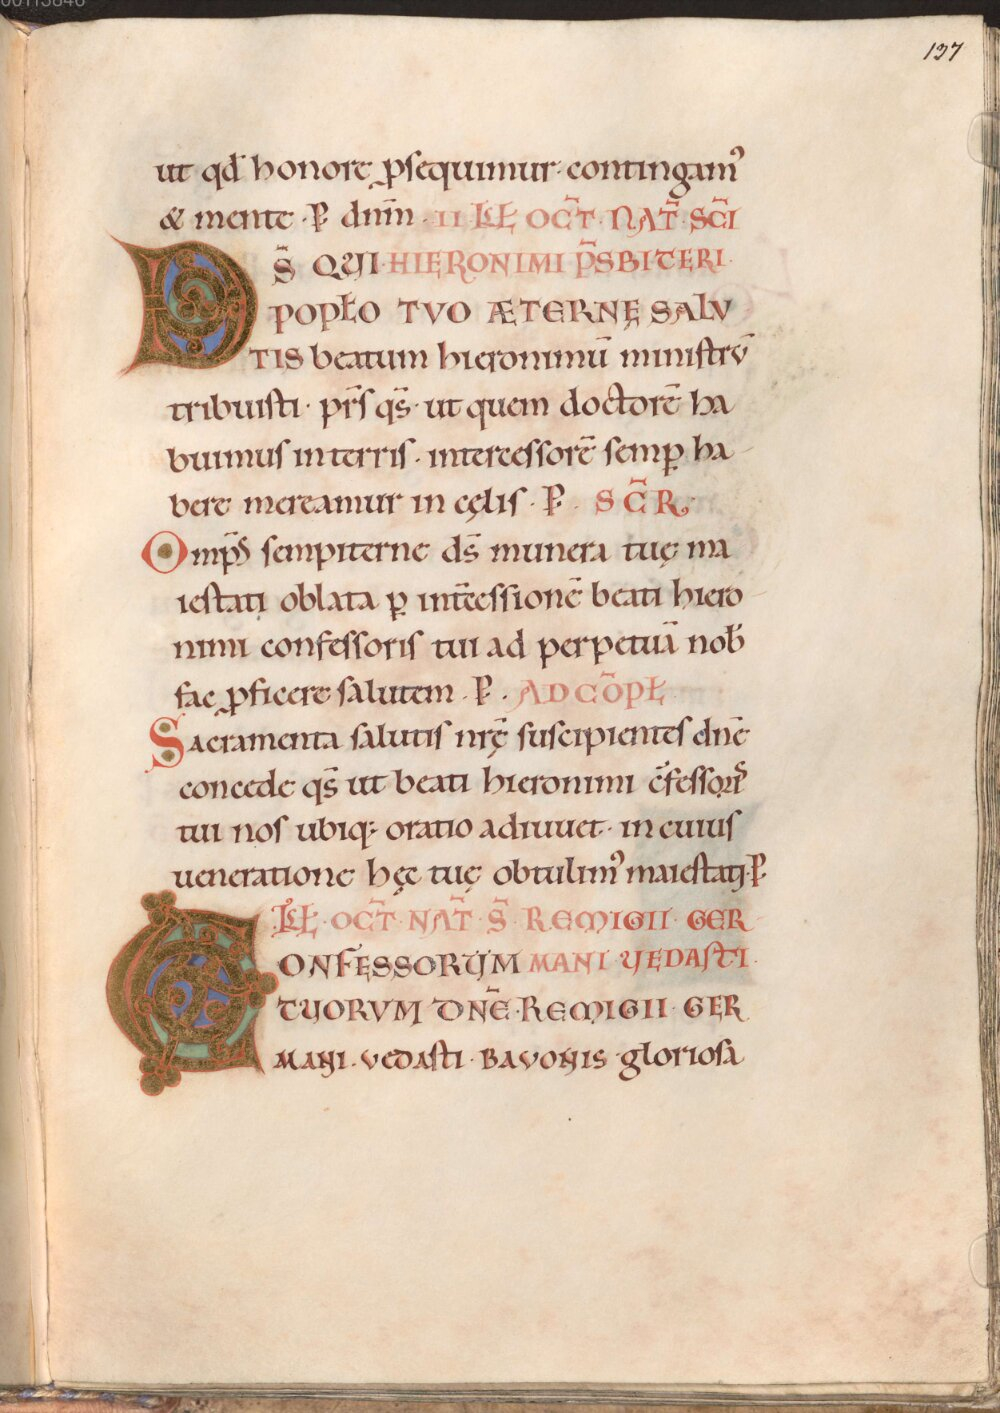 00113846
137
ut qđ honore ꝓsequimur · contingamꝰ
& mente · P̶ dnm̄ · II KL̄ OCT̄ · NAT̄ · SC̄I
DS̄ QUI · HIERONIMI P̄SBITERI ·
POPŁO TVO ÆTERNĘ SALV
TIS beatum hieronimū ministrū
tribuisti · pr̄s qs̄ · ut quem doctorē ha
buimus in terris · intercessorē semꝑ ha
bere mereamur in cęlis · P̶ · SC̄R
Omp̄s sempiterne ds̄ munera tuę ma
iestati oblata ꝑ int̄cessionē beati hiero
nimi confessoris tui ad perpetuā nob̄
fac ꝓficere salutem · P̶ · AD CŌPŁ
Sacramenta salutis nrę̄ suscipientes dn̄e
concede qs̄ ut beati hieronimi c̄fessorı̄s
tui nos ubiq; oratio adiuuet · in cuius
ueneratione hęc tuę obtulimꝰ maiestati · P̶
KL̄ OCT̄ · NAT̄ · S̄ · REMIGII · GER
CONFESSORUM MANI UEDASTI ·
TUORVM DN̄E · REMIGII · GER
MANI · VEDASTI · BAVONIS · gloriosa